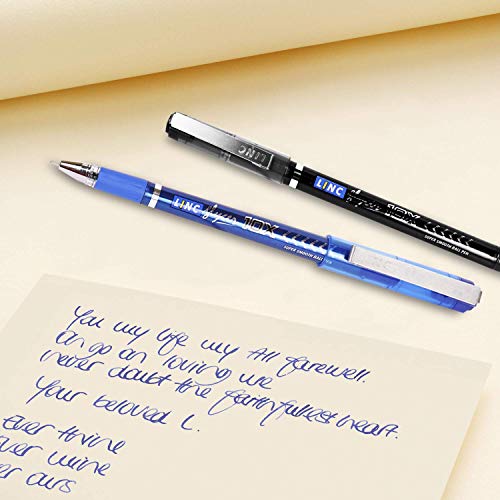 LINC
LINC 10X
SUPER SMOOTH BALL PEN
LINC 10X
SUPER SMOOTH BALL PEN
You my life my All farewell.
On go on loving me
never doubt the faithfullest heart.
Your beloved L.
Ever thine
ever mine
ver ours